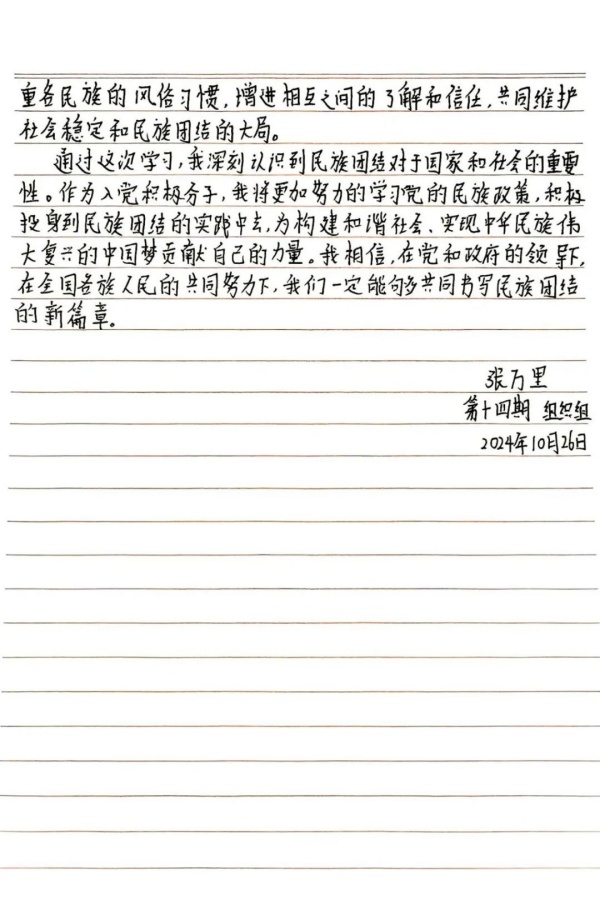 重各民族的风俗习惯，增进相互之间的了解和信任，共同维护
社会稳定和民族团结的大局。
通过这次学习，我深刻认识到民族团结对于国家和社会的重要
性。作为入党积极分子，我将更加努力的学习党的民族政策，积极
投身到民族团结的实践中去，为构建和谐社会、实现中华民族伟
大复兴的中国梦贡献自己的力量。我相信，在党和政府的领导下，
在全国各族人民的共同努力下，我们一定能够共同书写民族团结
的新篇章。
张万里
第十四期 组织组
2024年10月26日